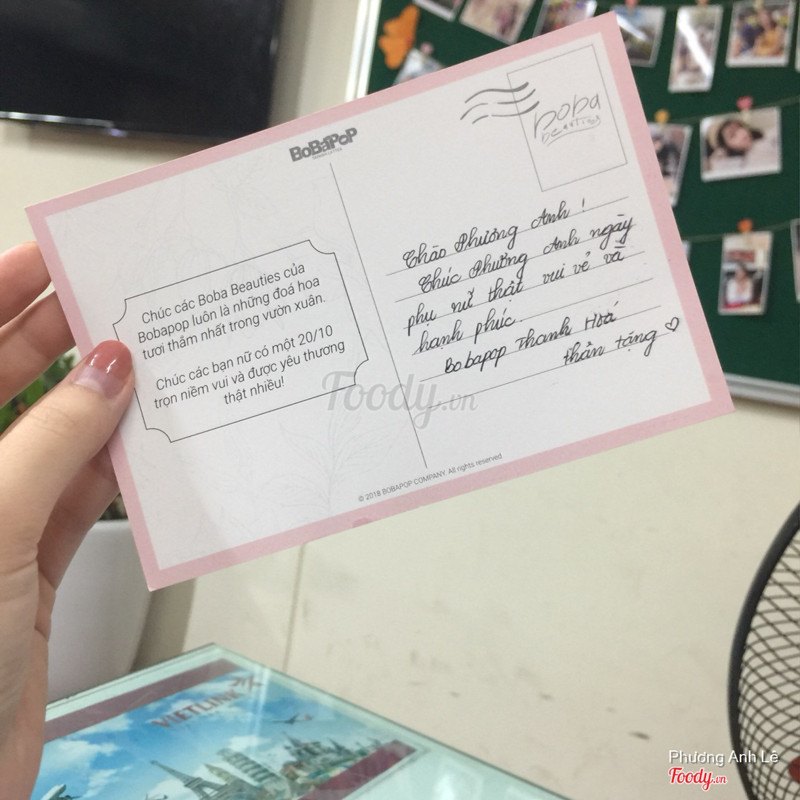 BoBaPoP
boba
beauties
Chúc các Boba Beauties của
Bobapop luôn là những đoá hoa
tươi thắm nhất trong vườn xuân.
Chúc các bạn nữ có một 20/10
trọn niềm vui và được yêu thương
thật nhiều!
Chào Phương Anh !
Chúc Phương Anh ngày
phụ nữ thật vui vẻ và
hạnh phúc.
Bobapop Thanh Hoá
thân tặng ♡
© 2018 BOBAPOP COMPANY. All rights reserved
Foody.vn
VIETLINK
Phương Anh Lê
Foody.vn